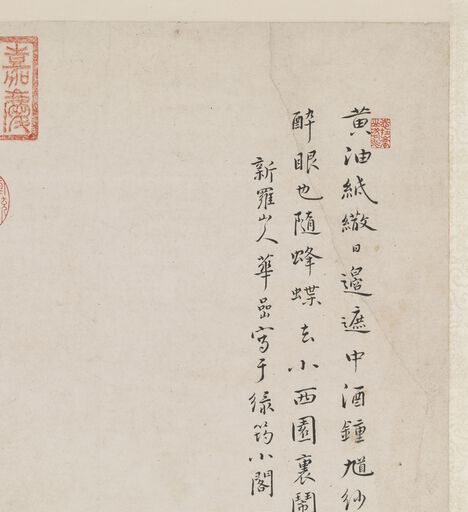 黄油紙繖日邊遮中酒鍾馗紗
醉眼也隨蜂蝶去小西園裏鬧
新羅山人華喦寫于緑筠小閣
嘉慶